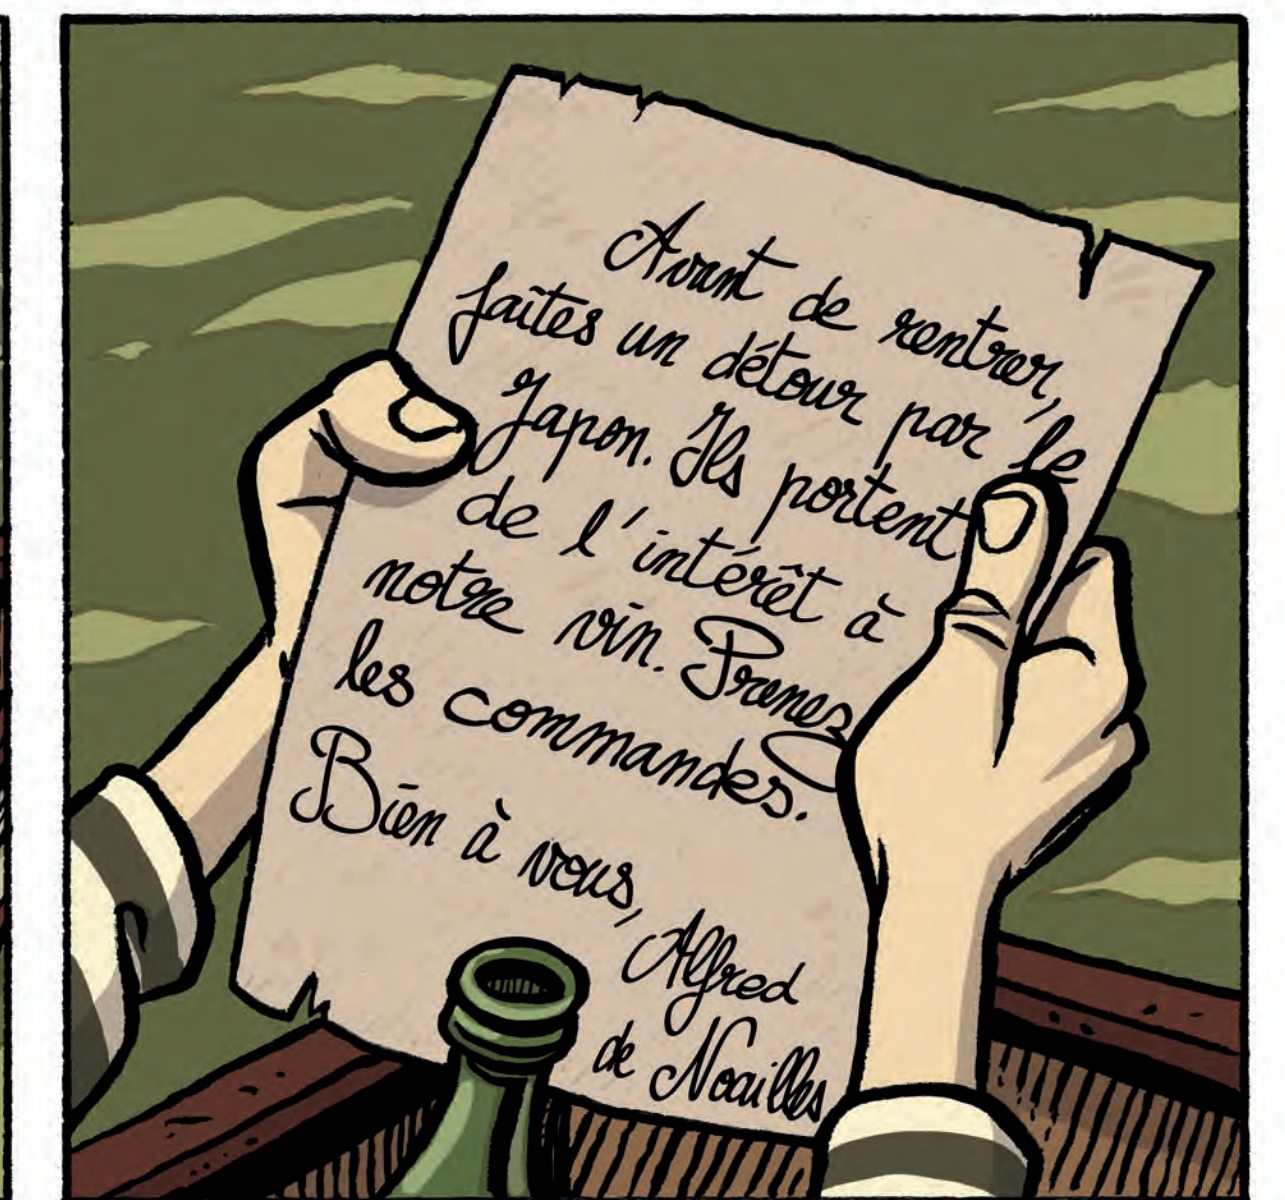 Avant de rentrer,
faites un détour par le
Japon. Ils portent
de l'intérêt à
notre vin. Prenez
les commandes.
Bien à vous,
Alfred
de Noailles